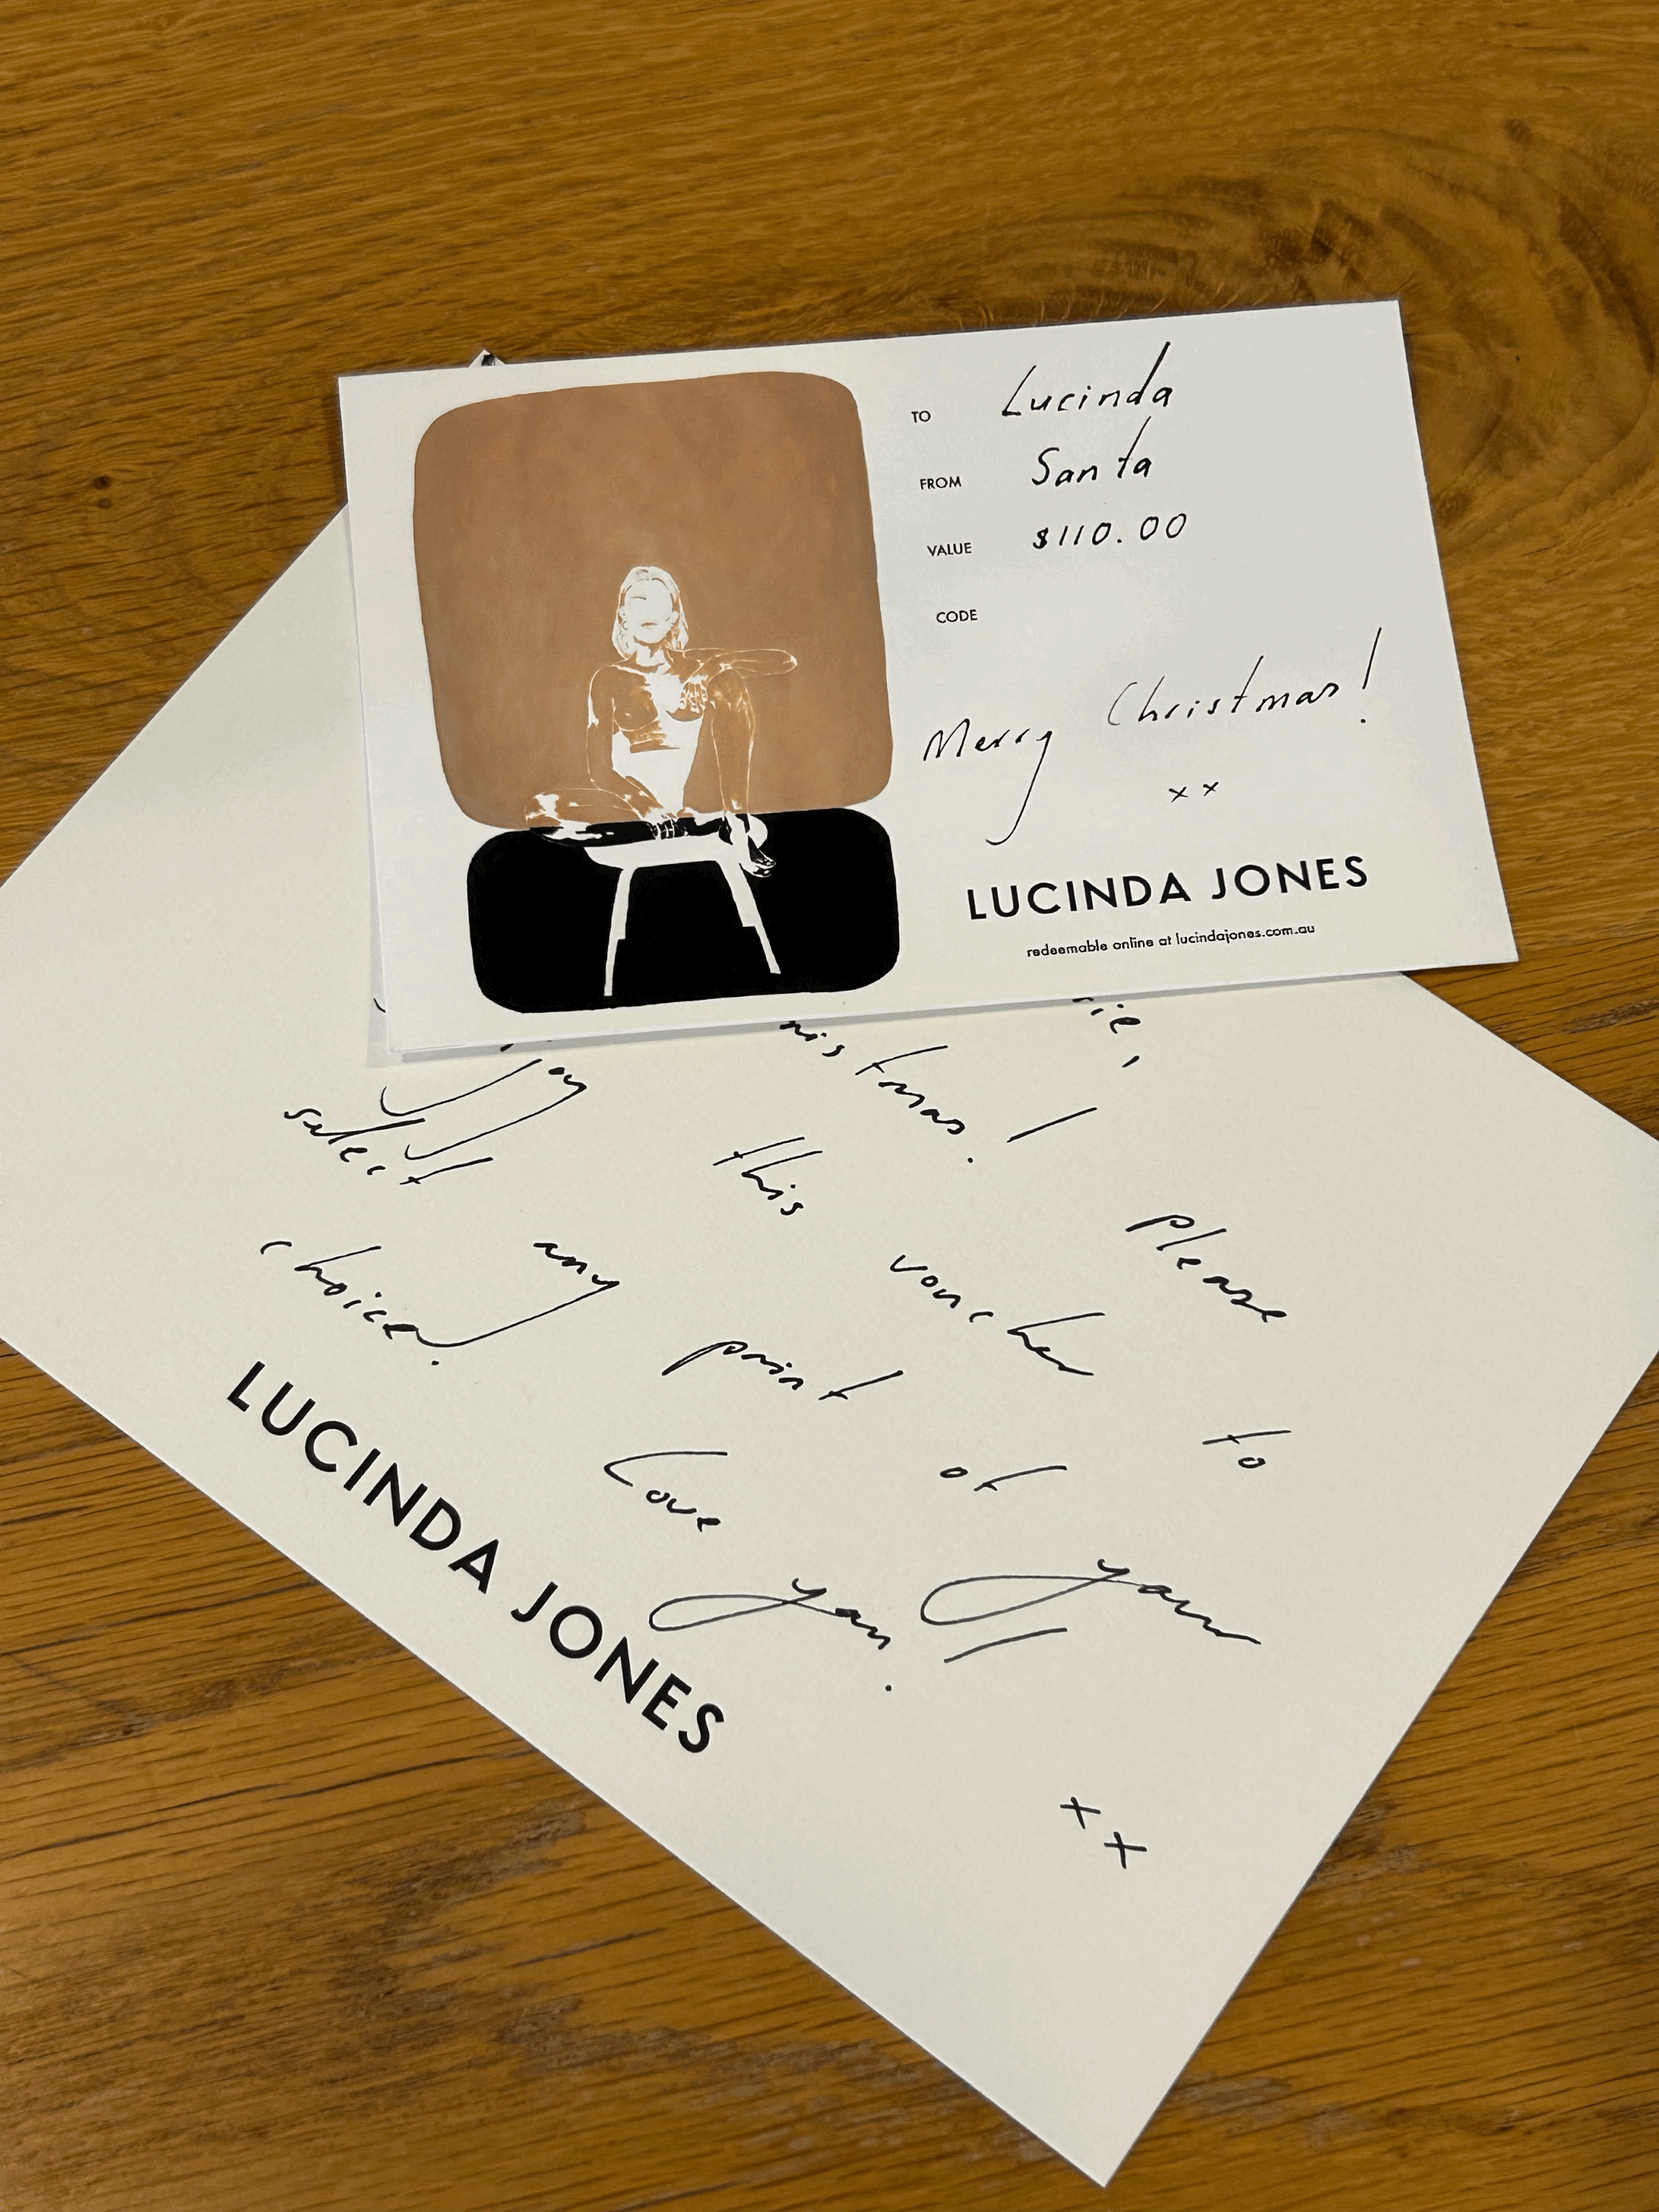 TO Lucinda
FROM Santa
VALUE $110.00
CODE
Merry Christmas!
xx
LUCINDA JONES
redeemable online at lucindajones.com.au
this voucher to
select any print of your
choice! Love you!
xx
LUCINDA JONES
please